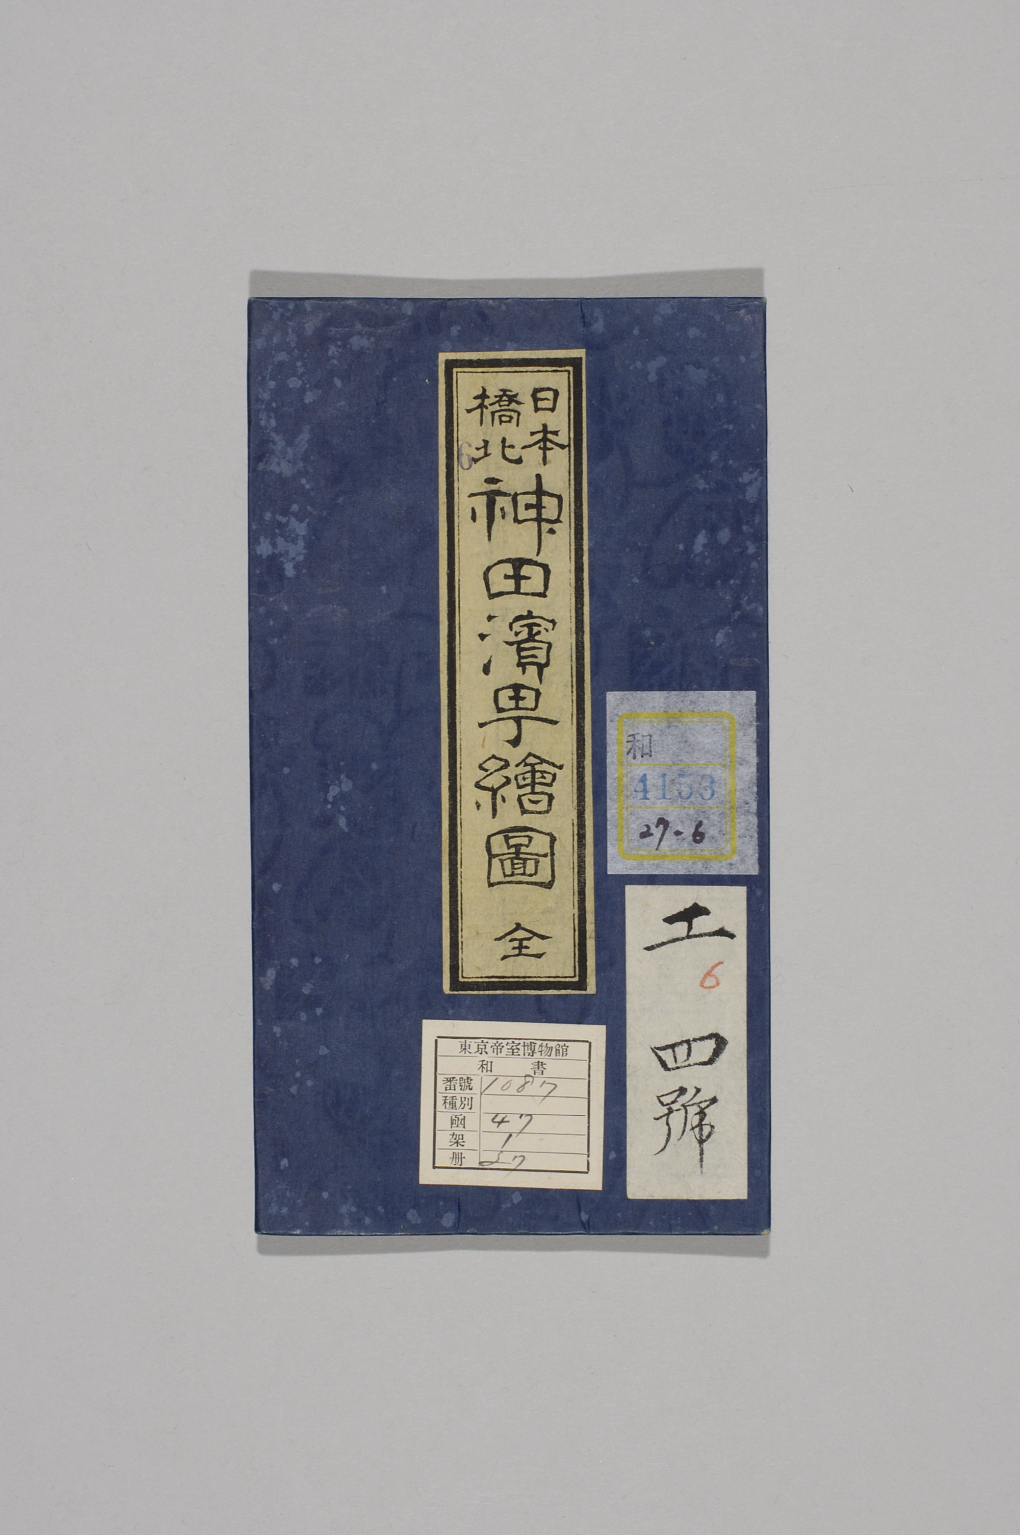 日本
橋北
神田濱町繪圖 全
6
和
4153
27-6
土
6
四號
東京帝室博物館
和書
番號 1087
種別
函 47
架 1
册 27